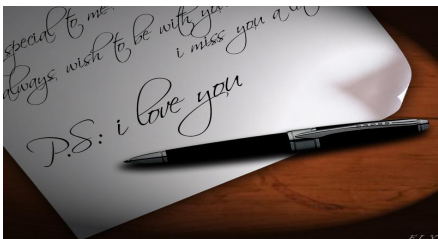 special to me.
always, wish to be with you
i miss you a
P.S: i love you